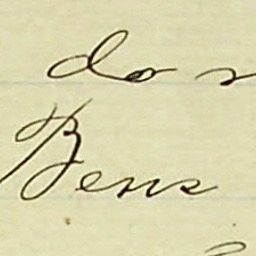 do
Bens